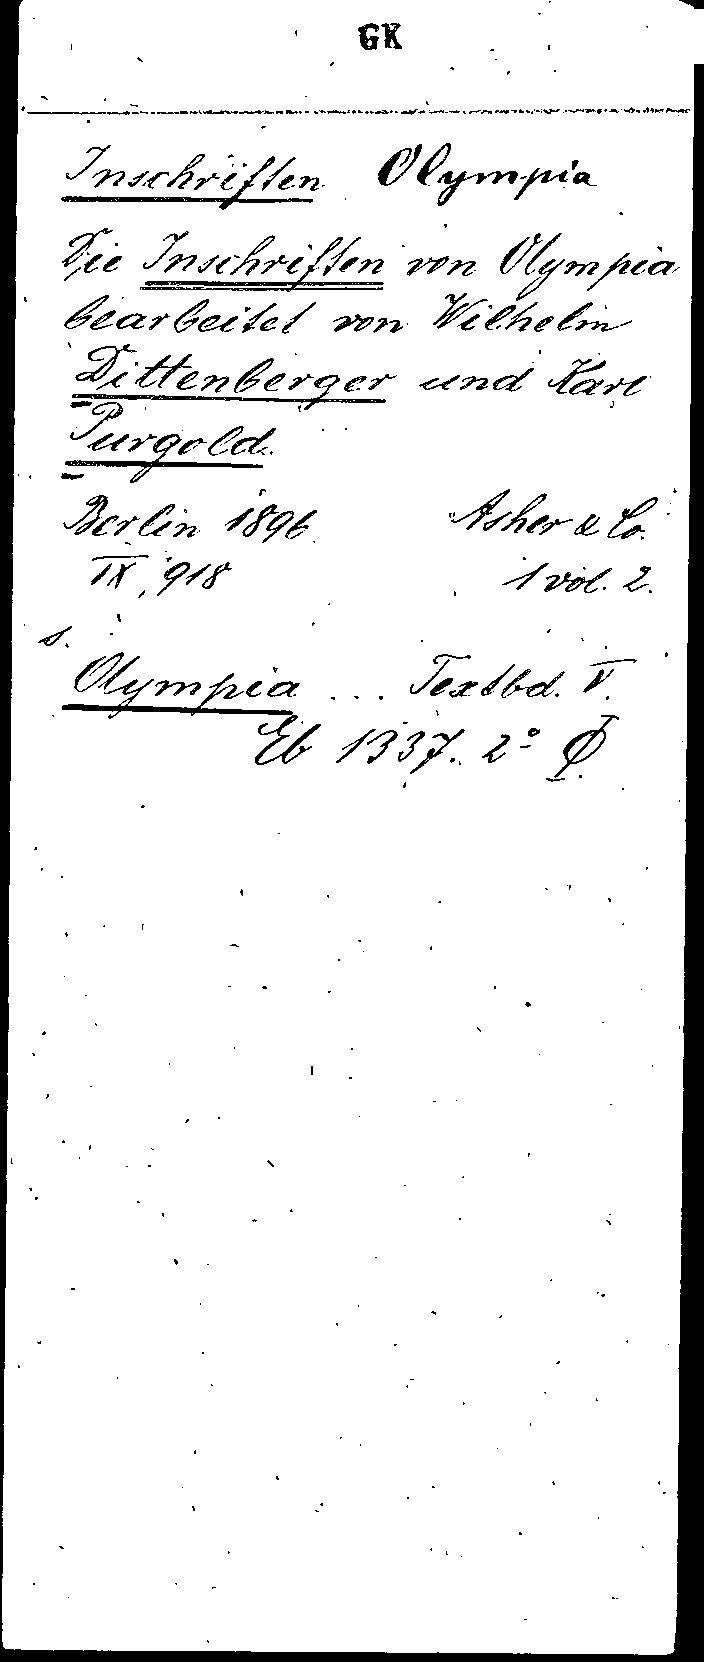 GK
Inschriften Olympia
Die Inschriften von Olympia
bearbeitet von Wilhelm
Dittenberger und Karl
Purgold.
Berlin 1896. Asher & Co.
IX, 918 1 vol. 2.
s.
Olympia ... Textbd. V.
Eb 1337. 2º Φ